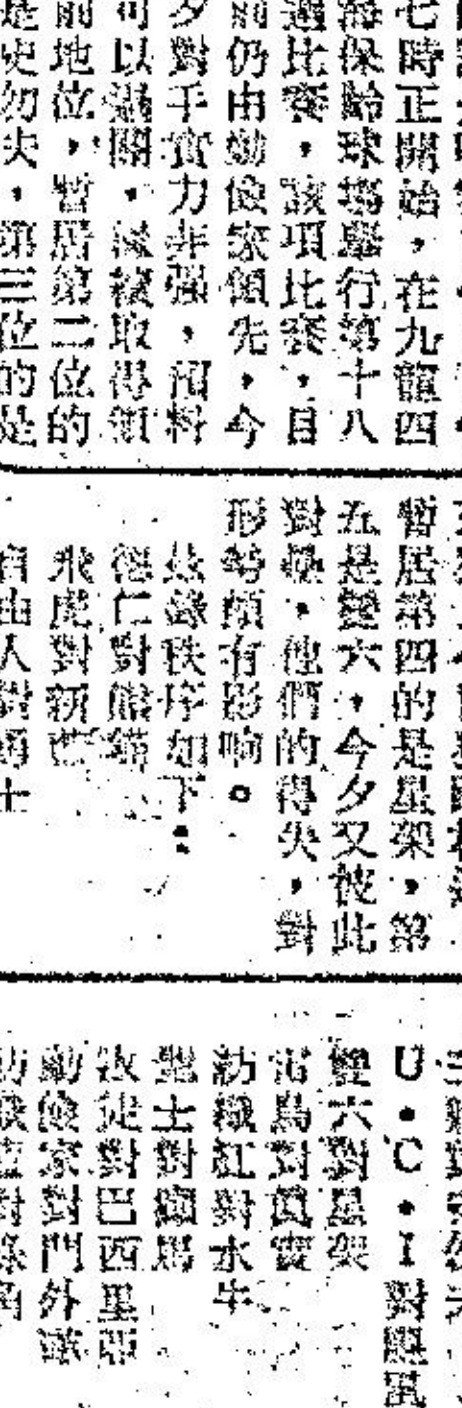 七時正開始，在九龍四
海保齡球塲舉行第十八
週比賽，該項比賽，目
前仍由勤儉家領先，今
夕對手實力非强，預料
可以過關，繼續取得領
前地位，暫居第二位的
是史勿夫，第三位的是
暫居第四的是星架，第
五是雙六，今夕又彼此
對壘，他們的得失，對
形勢頗有影响。
玆錄秩序如下：
德仁對熊貓
飛虎對新
自由人對勇士
U•C•I對
雙六對星架
雷鳥對
紡織紅對水牛
聖士對
牧徒對巴西里亞
勤儉家對門外
紡織藍對